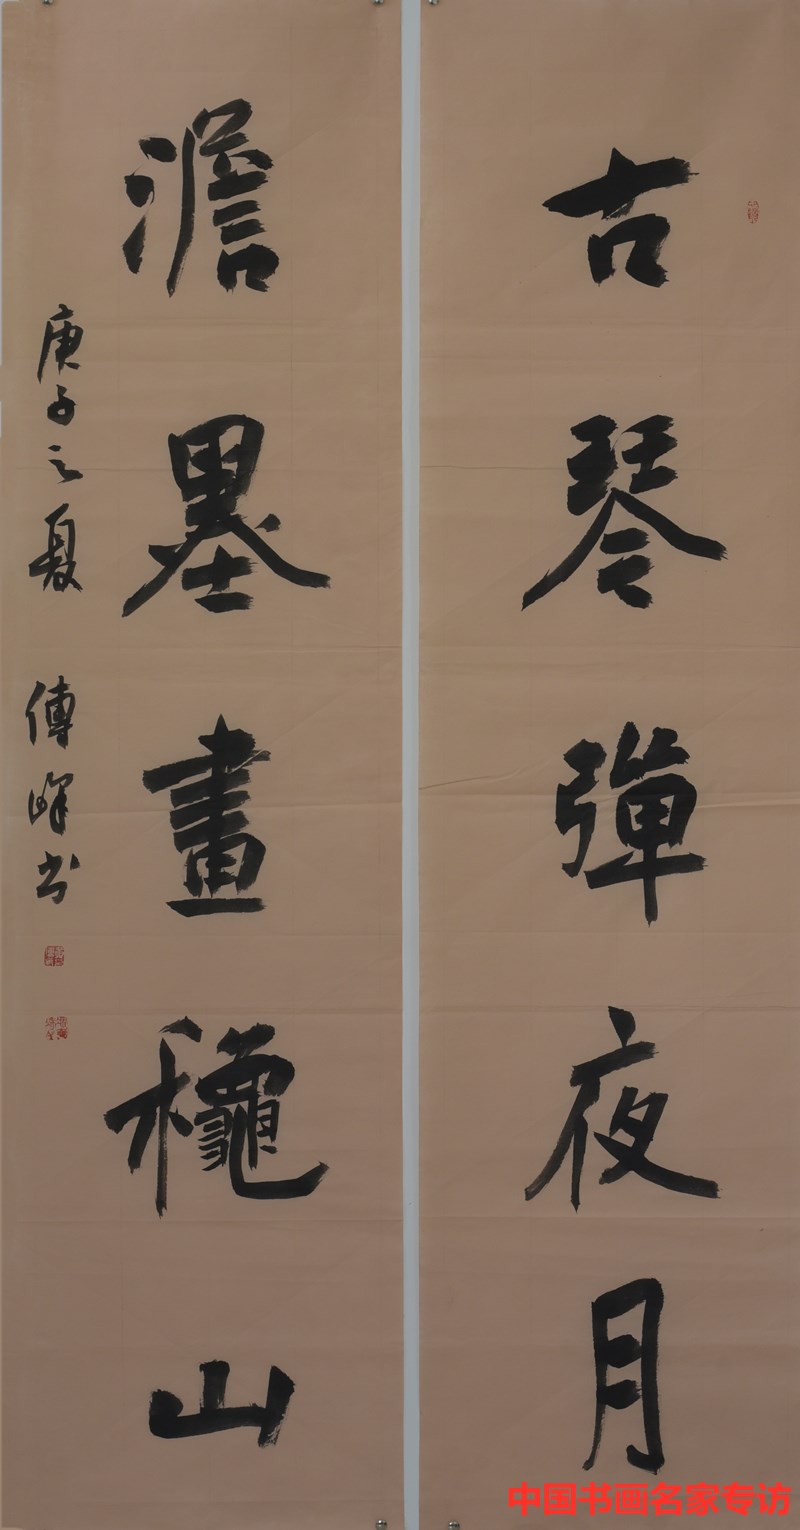 古琴彈夜月
澹墨畫龝山
庚子之夏 傅暉书
中国书画名家专访